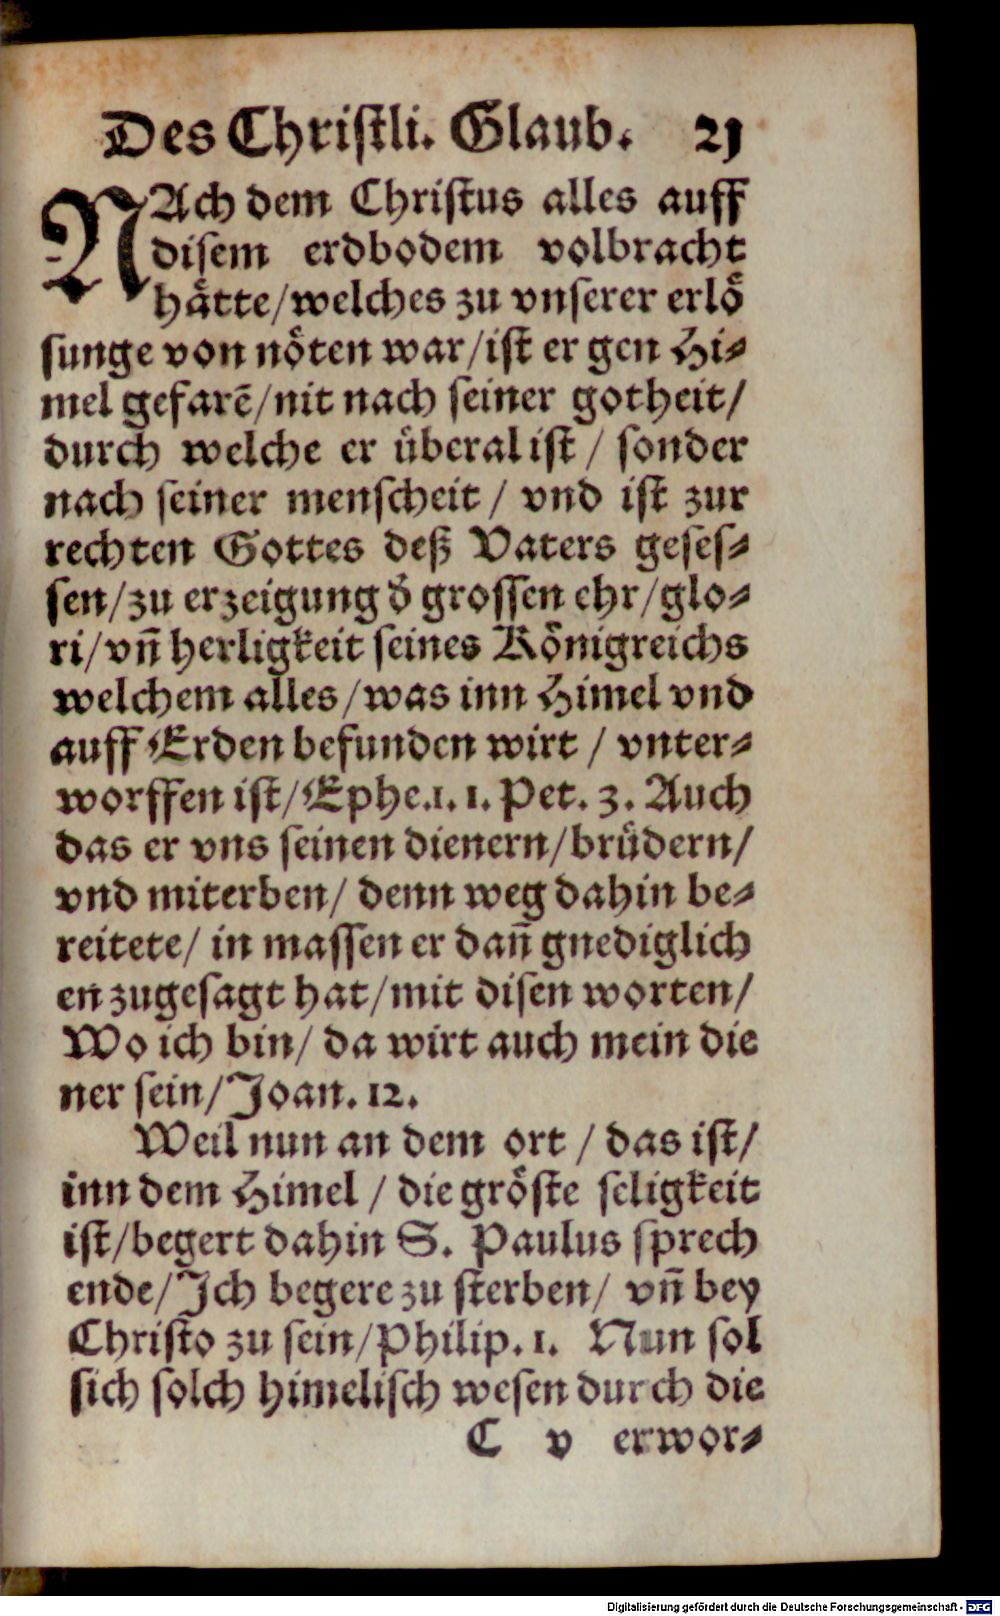 Des Christli. Glaub. 21
NAch dem Christus alles auff
disem erdbodem volbracht
haͤtte/welches zu vnserer erloͤ
sunge von noͤten war/ist er gen Hi-
mel gefarē/nit nach seiner gotheit/
durch welche er uͤberal ist/ sonder
nach seiner menscheit/ vnd ist zur
rechten Gottes deß Vaters geses-
sen/zu erzeigung d̕ grossen ehr/glo-
ri/vñ herligkeit seines Koͤnigreichs
welchem alles/was inn Himel vnd
auff Erden befunden wirt/ vnter-
worffen ist/Ephe.1. 1. Pet. 3. Auch
das er vns seinen dienern/bruͤdern/
vnd miterben/ denn weg dahin be-
reitete/ in massen er dañ gnediglich
en zugesagt hat/mit disen worten/
Wo ich bin/ da wirt auch mein die
ner sein/Joan. 12.
Weil nun an dem ort/ das ist/
inn dem Himel/ die groͤste seligkeit
ist/begert dahin S. Paulus sprech
ende/Jch begere zu sterben/ vñ bey
Christo zu sein/Philip. 1. Nun sol
sich solch himelisch wesen durch die
C v erwor-
Digitalisierung gefördert durch die Deutsche Forschungsgemeinschaft - DFG